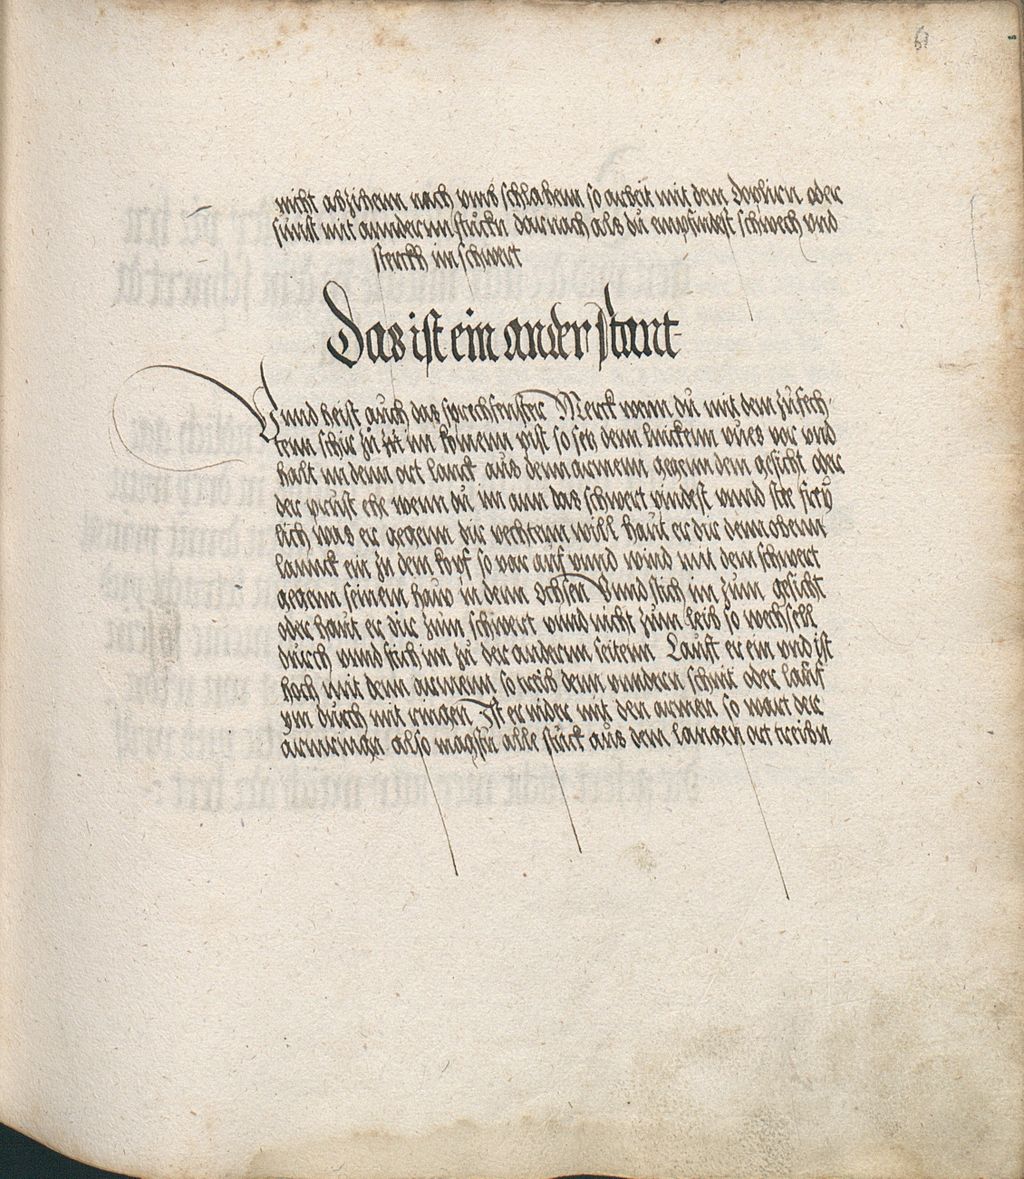 61
nicht abzihenn noch vmb schlahenn so arbeit mit dem Duplirn oder
sünst mit anndernn stückn darnach als dü empfindest schwech vnd
sterckh im schwert
Das ist ein ander stant
Vnnd heist auch das sprechfenster Merck wenn dü mit dem züfech-
tenn schir zu im komenn pist so secz denn linckenn vues vor vnd
halt im denn ort lanck aus denn armenn gegenn dem gesicht oder
der prüst ehe wenn dü im ann das schwert pindest vnnd stee frey
lich was er gegenn dir vechtenn will haut er dir denn obenn
lannck ein zu dem kopf so var auf vnnd wind mit dem schwert
gegenn seinem haw in denn Ochsen Vnnd stich im zum gesicht
oder haut er dir züm schwert vnnd nicht züm leib so wechsell
dürch vnnd stich im zu der anderm seitenn Laufft er ein vnd ist
hoch mit denn armenn so treib denn vnndern schnit oder lauf
im dürch mit ringen Ist er nider mit den armen so wart der
armringn also magstu alle stuck aus dem langen ort treibn